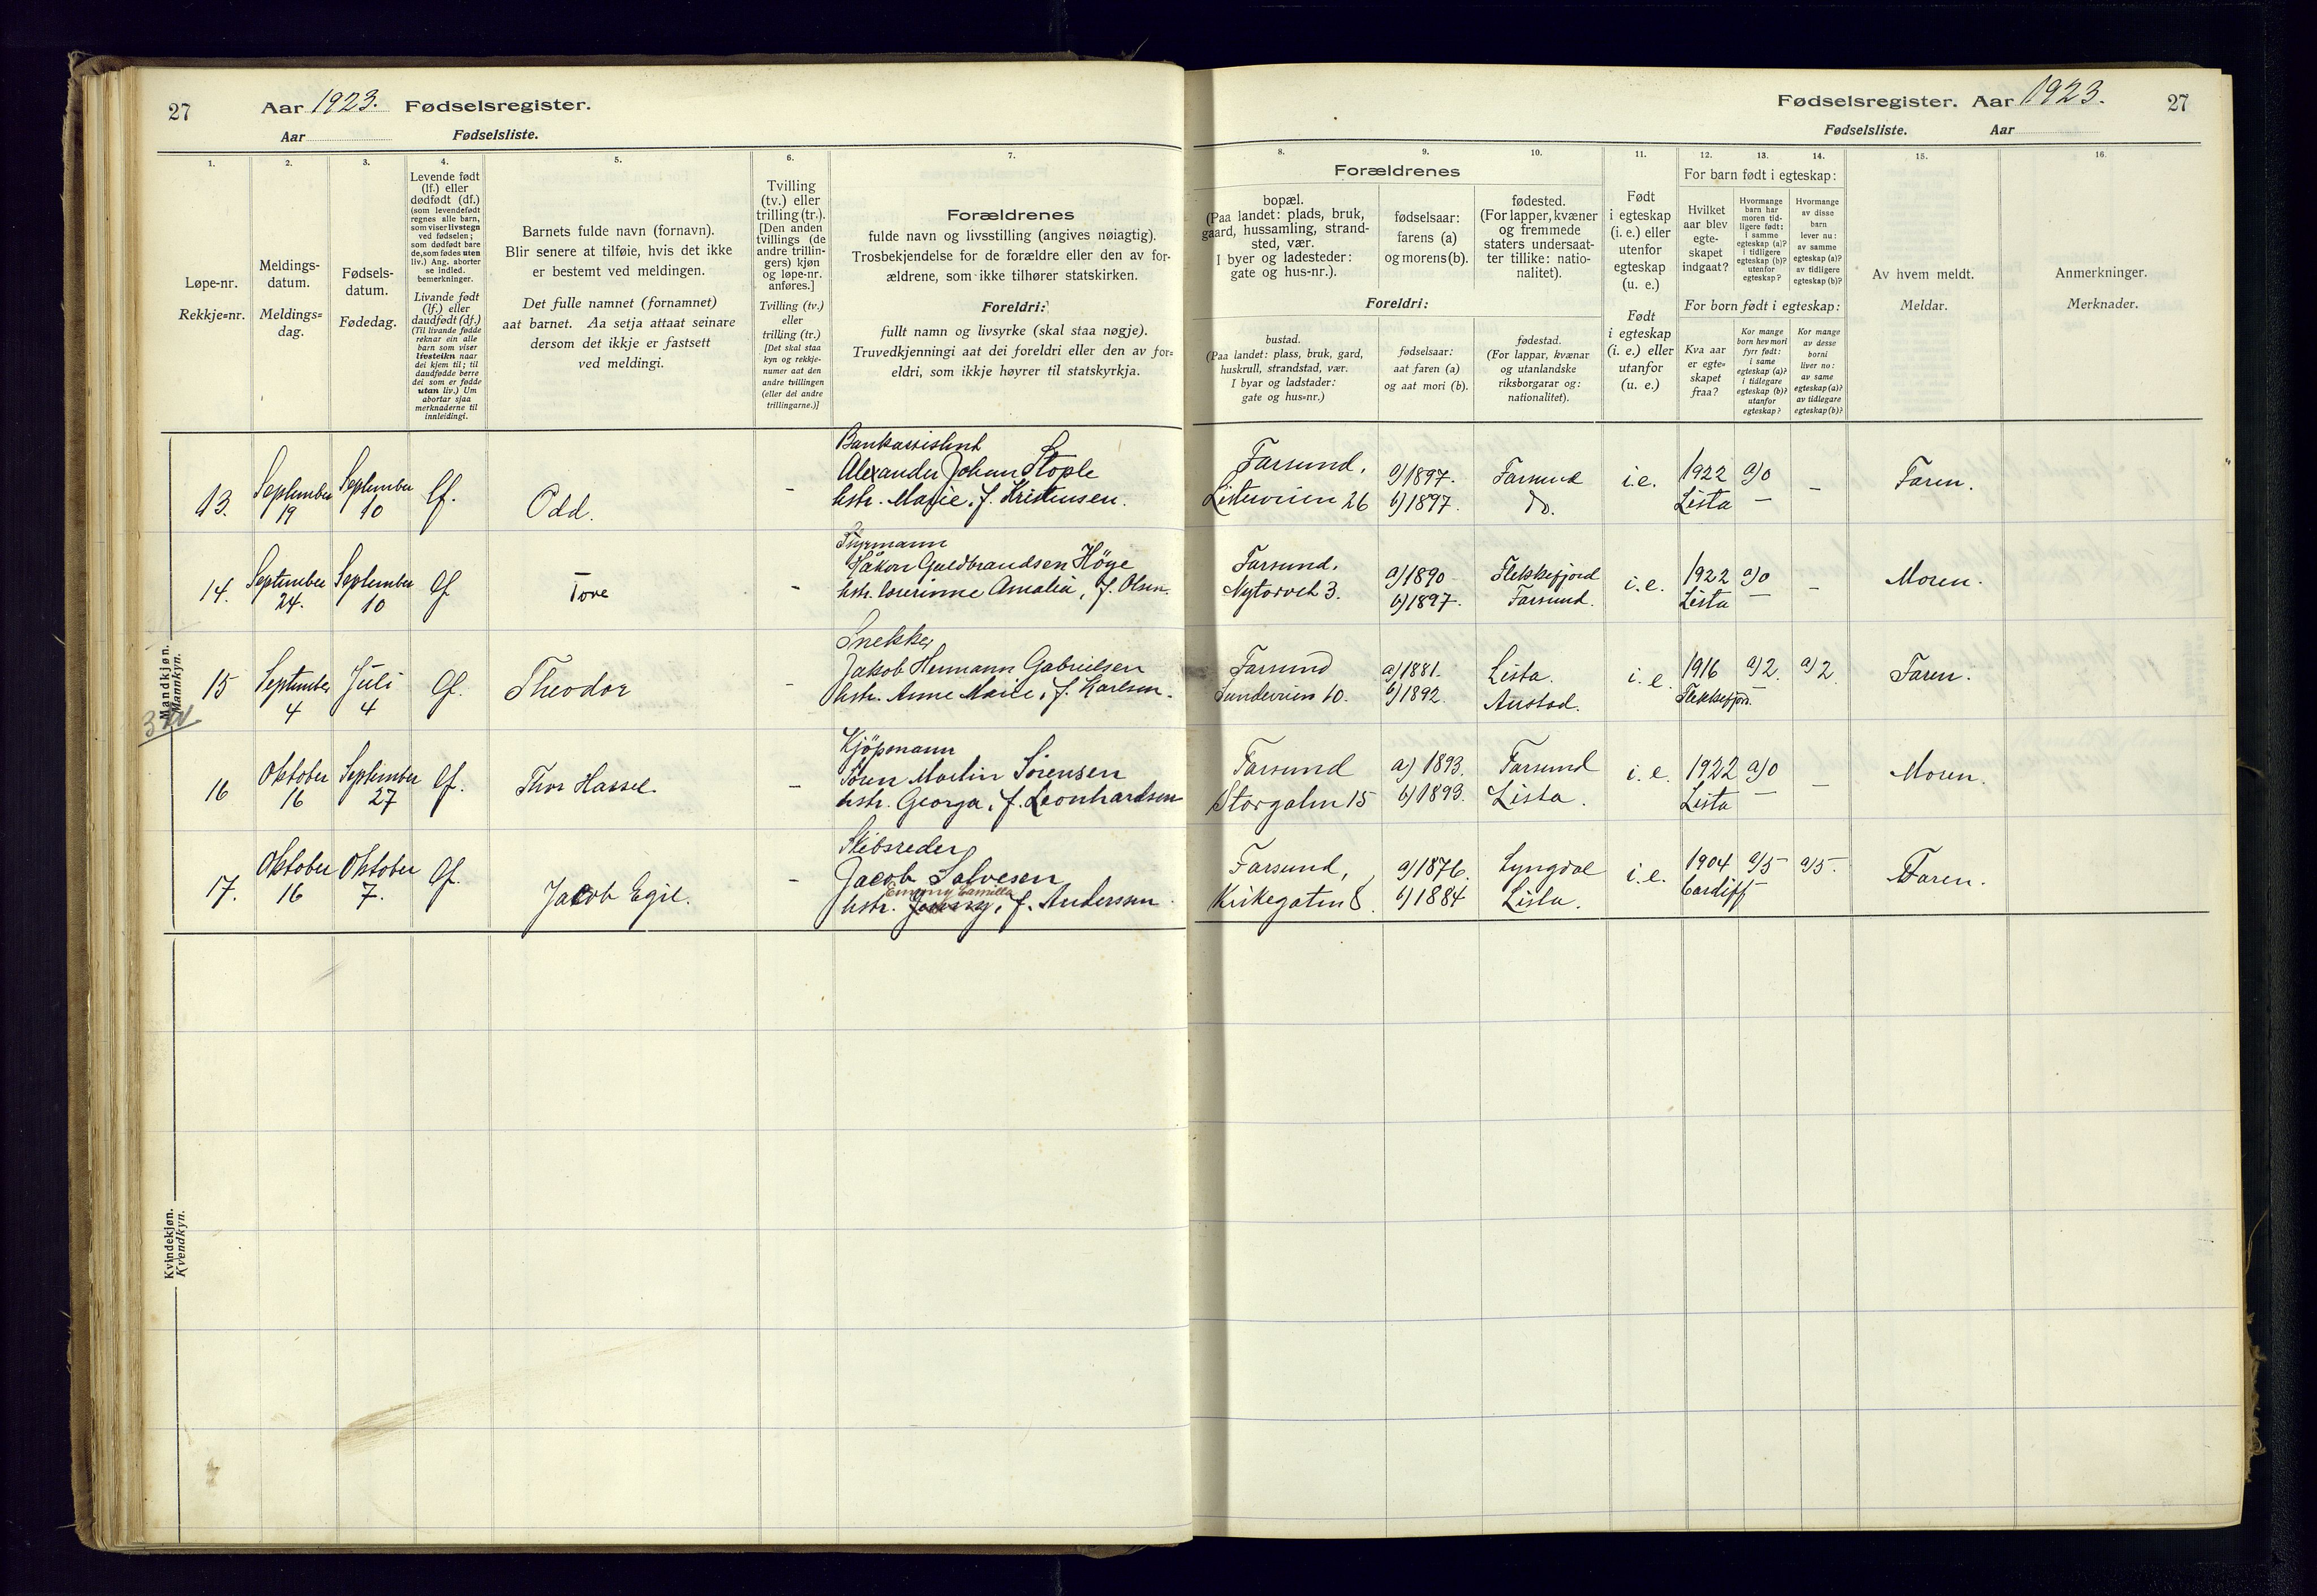 27
Aar 1923. Fødselsregister.
Aar Fødselsliste.
1.
Løpe-nr.
Rekkje=nr.
2.
Meldings-
datum.
Meldings=
dag.
3.
Fødsels-
datum.
Fødedag.
4.
Levende født
(lf.) eller
dødfødt (df.)
(som levendefødt
regnes alle barn,
som viser livstegn
ved fødselen;
som dødfødt bare
de, som fødes uten
liv.) Ang. aborter
se indled.
bemerkninger.
Livande født
(lf.) eller
daudfødt (df.)
(Til livande fødde
reknar ein alle
barn som viser
livsteikn naar
dei kjem til; til
daudfødde berre
dei som er fødde
utan liv.) Um
abortar sjaa
merknaderne til
innleidingi.
5.
Barnets fulde navn (fornavn).
Blir senere at tilføie, hvis det ikke
er bestemt ved meldingen.
Det fulle namnet (fornamnet)
aat barnet. Aa setja attaat seinare
dersom det ikkje er fastsett
ved meldingi.
6.
Tvilling
(tv.) eller
trilling (tr.).
[Den anden
tvillings (de
andre trillin-
gers) kjøn
og løpe-nr.
anføres.]
Tvilling (tv.)
eller
trilling (tr.)
[Det skal staa
kyn og rekkje-
numer aat den
andre tvillingen
(eller dei andre
trillingarne.)]
7.
Forældrenes
fulde navn og livsstilling (angives nøiagtig).
Trosbekjendelse for de forældre eller den av for-
ældrene, som ikke tilhører statskirken.
Foreldri:
fullt namn og livsyrke (skal staa nøgje).
Truvedkjenningi aat dei foreldri eller den av for=
eldri, som ikkje høyrer til statskyrkja.
Mandkjøn.
Mannkyn.
13.
September
19
September
10
lf.
Odd.
-
Bankassistent
Alexander Johan Stople
hstr. Marie, f. Kristensen.
14.
September
24.
September
10
lf
Tore
-
Styrmann
Håkon Guldbrandsen Höye
hstr. Amalia, f. Olsen.
15
September
4
Juli
4
lf.
Theodor
-
Snekker
Jakob Hermann Gabrielsen
hstr. Anne Marie, f. Karlsen.
16
Oktober
16
September
27
lf.
Thor Hassel.
-
Kjöpmann
Sören Martin Sörensen
hstr. Georga, f. Leonhardsen
17.
Oktober
16
Oktober
7.
lf.
Jacob Egil.
-
Skibsreder
Jacob Salvesen
Emmy Camilla
hstr. f. Anderssen.
Kvindekjøn.
Kvendkyn.
Fødselsregister. Aar 1923.
27
Fødselsliste. Aar
8.
Forældrenes
bopæl.
(Paa landet: plads, bruk,
gaard, hussamling, strand-
sted, vær.
I byer og ladesteder:
gate og hus-nr.).
Foreldri:
bustad.
(Paa landet: plass, bruk, gard,
huskrull, strandstad, vær.
I byar og ladstader:
gate og hus=nr.)
9.
fødselsaar:
farens (a)
og morens (b).
fødselsaar:
aat faren (a)
og aat mori (b).
10.
fødested.
(For lapper, kvæner
og fremmede
staters undersaat-
ter tillike: natio-
nalitet).
fødestad.
(For lappar, kvænar
og utanlandske
riksborgarar og:
nationalitet).
11.
Født
i egteskap
(i. e.) eller
utenfor
egteskap
(u. e.)
Født
i egteskap
(i. e.) eller
utanfor
(u. e.)
For barn født i egteskap:
12.
Hvilket
aar blev
egte-
skapet
indgaat?
13.
Hvormange
barn har
moren tid-
ligere født:
i samme
egteskap (a)?
i tidligere
egteskap (b)?
utenfor
egteskap?
14.
Hvormange
av disse
barn
lever nu:
av samme
egteskap (a)?
av tidligere
egteskap (b)?
For born født i egteskap:
Kva aar
er egte=
skapet
fraa?
Kor mange
born hev mori
fyrr født:
i same
egteskap (a)?
i tidlegare
egteskap (b)?
utanfor
egteskap?
Kor mange
av desse
borni
liver no:
av same
egteskap (a)?
av tidlegare
egteskap (b)?
15.
Av hvem meldt.
Meldar.
16.
Anmerkninger.
Merknader.
Farsund.
Listerveien 26
a) 1897.
b) 1897.
Farsund
do.
i.e.
1922
Lista
a) 0
–
-
Faren.
Farsund.
Nytorvet 3.
a) 1890
b) 1897.
Flekkefjord
Farsund.
i.e.
1922
Lista
a) 0
–
-
Moren.
Farsund
Sundeveien 10.
a) 1881.
b) 1892.
Lista.
Austad.
i.e.
1916
Flekkefjord.
a) 2.
–
a) 2
Faren.
Farsund
Storgaten 15
a) 1893.
b) 1893.
Farsund
Lista.
i.e.
1922
Lista
a) 0
–
-
Moren.
Farsund,
Kirkegaten 8.
a) 1876.
b) 1884
Lyngdal
Lista.
i.e.
1904
Cardiff
a) 5
–
a) 5.
Faren.